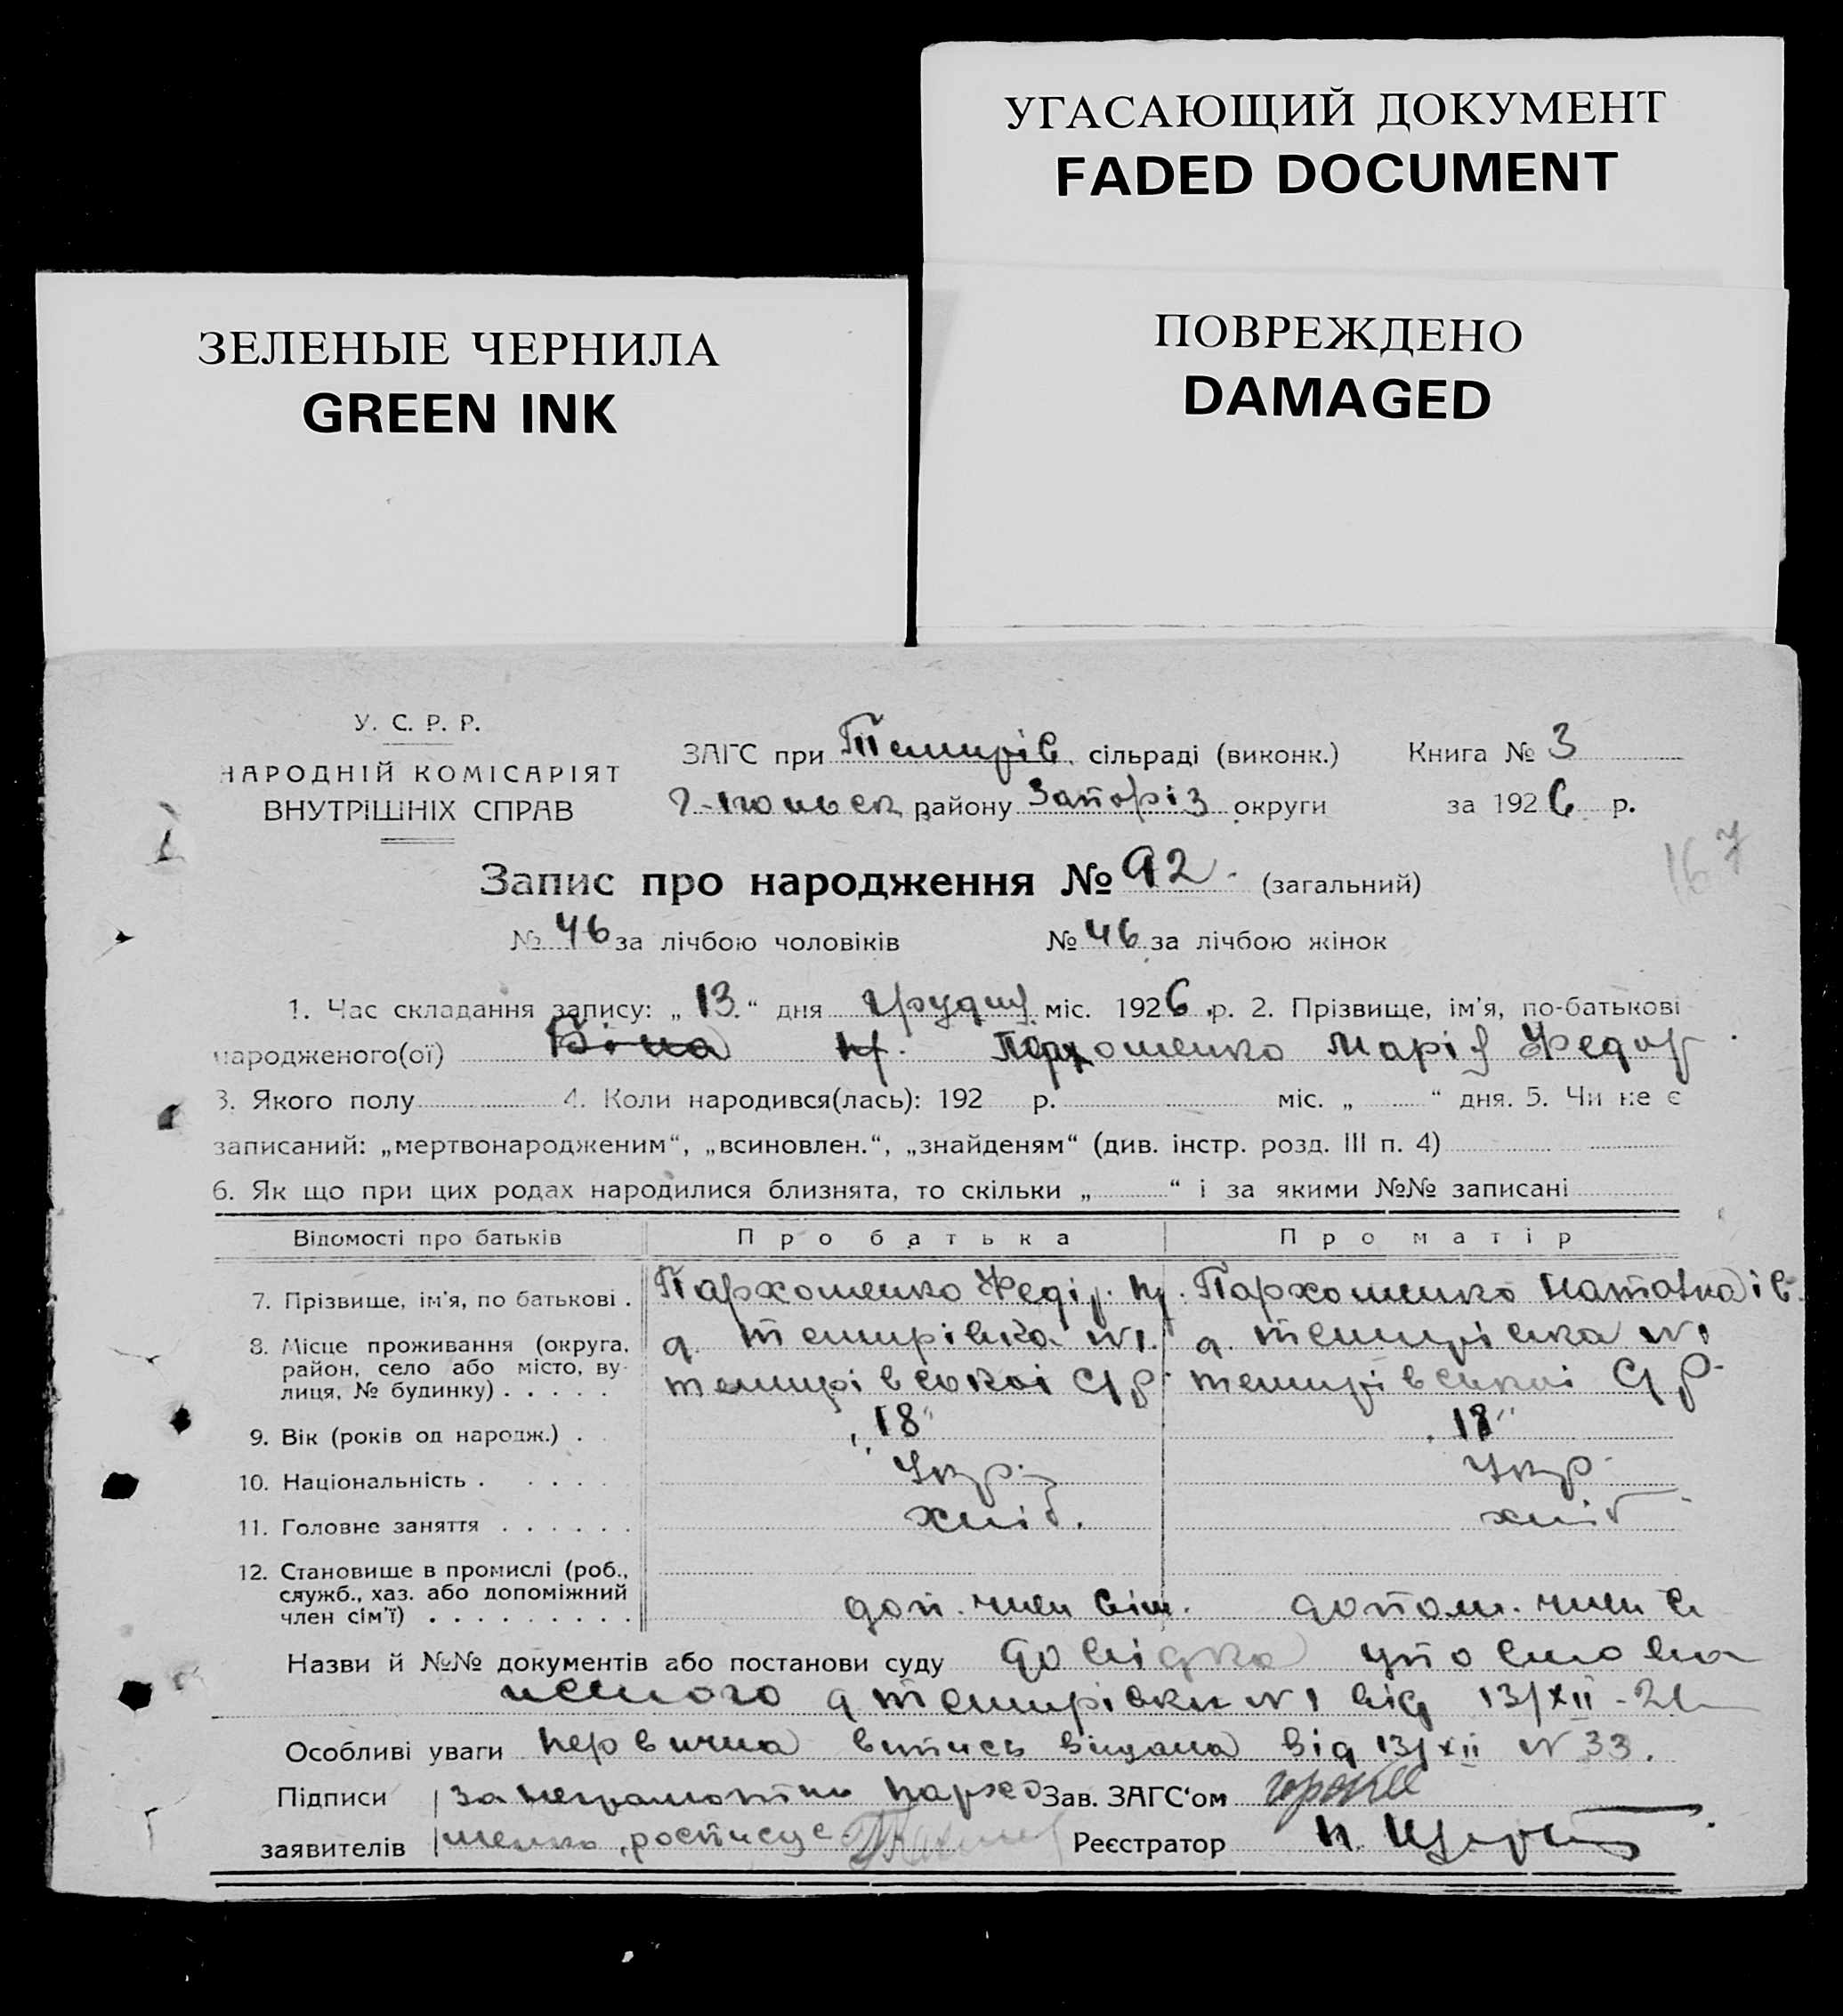 УГАСАЮЩИЙ ДОКУМЕНТ
FADED DOCUMENT
ЗЕЛЕНЫЕ ЧЕРНИЛА
GREEN INK
ПОВРЕЖДЕНО
DAMAGED
У. С. Р. Р.
НАРОДНІЙ КОМІСАРІЯТ
ВНУТРІШНІХ СПРАВ
ЗАГС при Темирів. сільраді (виконк.) Книга № 3
району Запоріз округи за 1926 р.
167
Запис про народження № 92. (загальний)
№ 46 за лічбою чоловіків № 46 за лічбою жінок
1. Час складання запису: „13.“ дня грудня міс. 1926 р. 2. Прізвище, ім'я, по-батькові
народженого(ої) Пархоменко Марія Федор
3. Якого полу 4. Коли народився(лась): 192 р. міс. „ “ дня. 5. Чи не є
записаний: „мертвонародженим“, „всиновлен.“, „знайденям“ (див. інстр. розд. III п. 4)
6. Як що при цих родах народилися близнята, то скільки „ “ і за якими №№ записані
Відомості про батьків Про батька Про матір
7. Прізвище, ім'я, по батькові . Пархоменко Федір. Пархоменко Наталка ів.
8. Місце проживання (округа, район, село або місто, вулиця, № будинку) . . . . . д. Темирівка №1. д. Темирівка №1
темирівської С/р. темирівської С/р.
9. Вік (років од народж.) . „18“ „18“
10. Національність . . . . . Укр. Укр.
11. Головне заняття . . . . . . хліб. хліб
12. Становище в промислі (роб., служб., хаз. або допоміжний член сім'ї) . . . . . . . . . доп. член сім. допом. член с
Назви й №№ документів або постанови суду довідка уповнова
женого д Темирівки №1 від 13/XII-26
Особливі уваги первична випись видана від 13/XII № 33.
Підписи за неграмотн Пархо Зав. ЗАГС‘ом
заявителів менко росписус Реєстратор